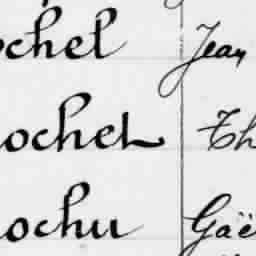 ochel Jean
ochet Th
ochu Gaë